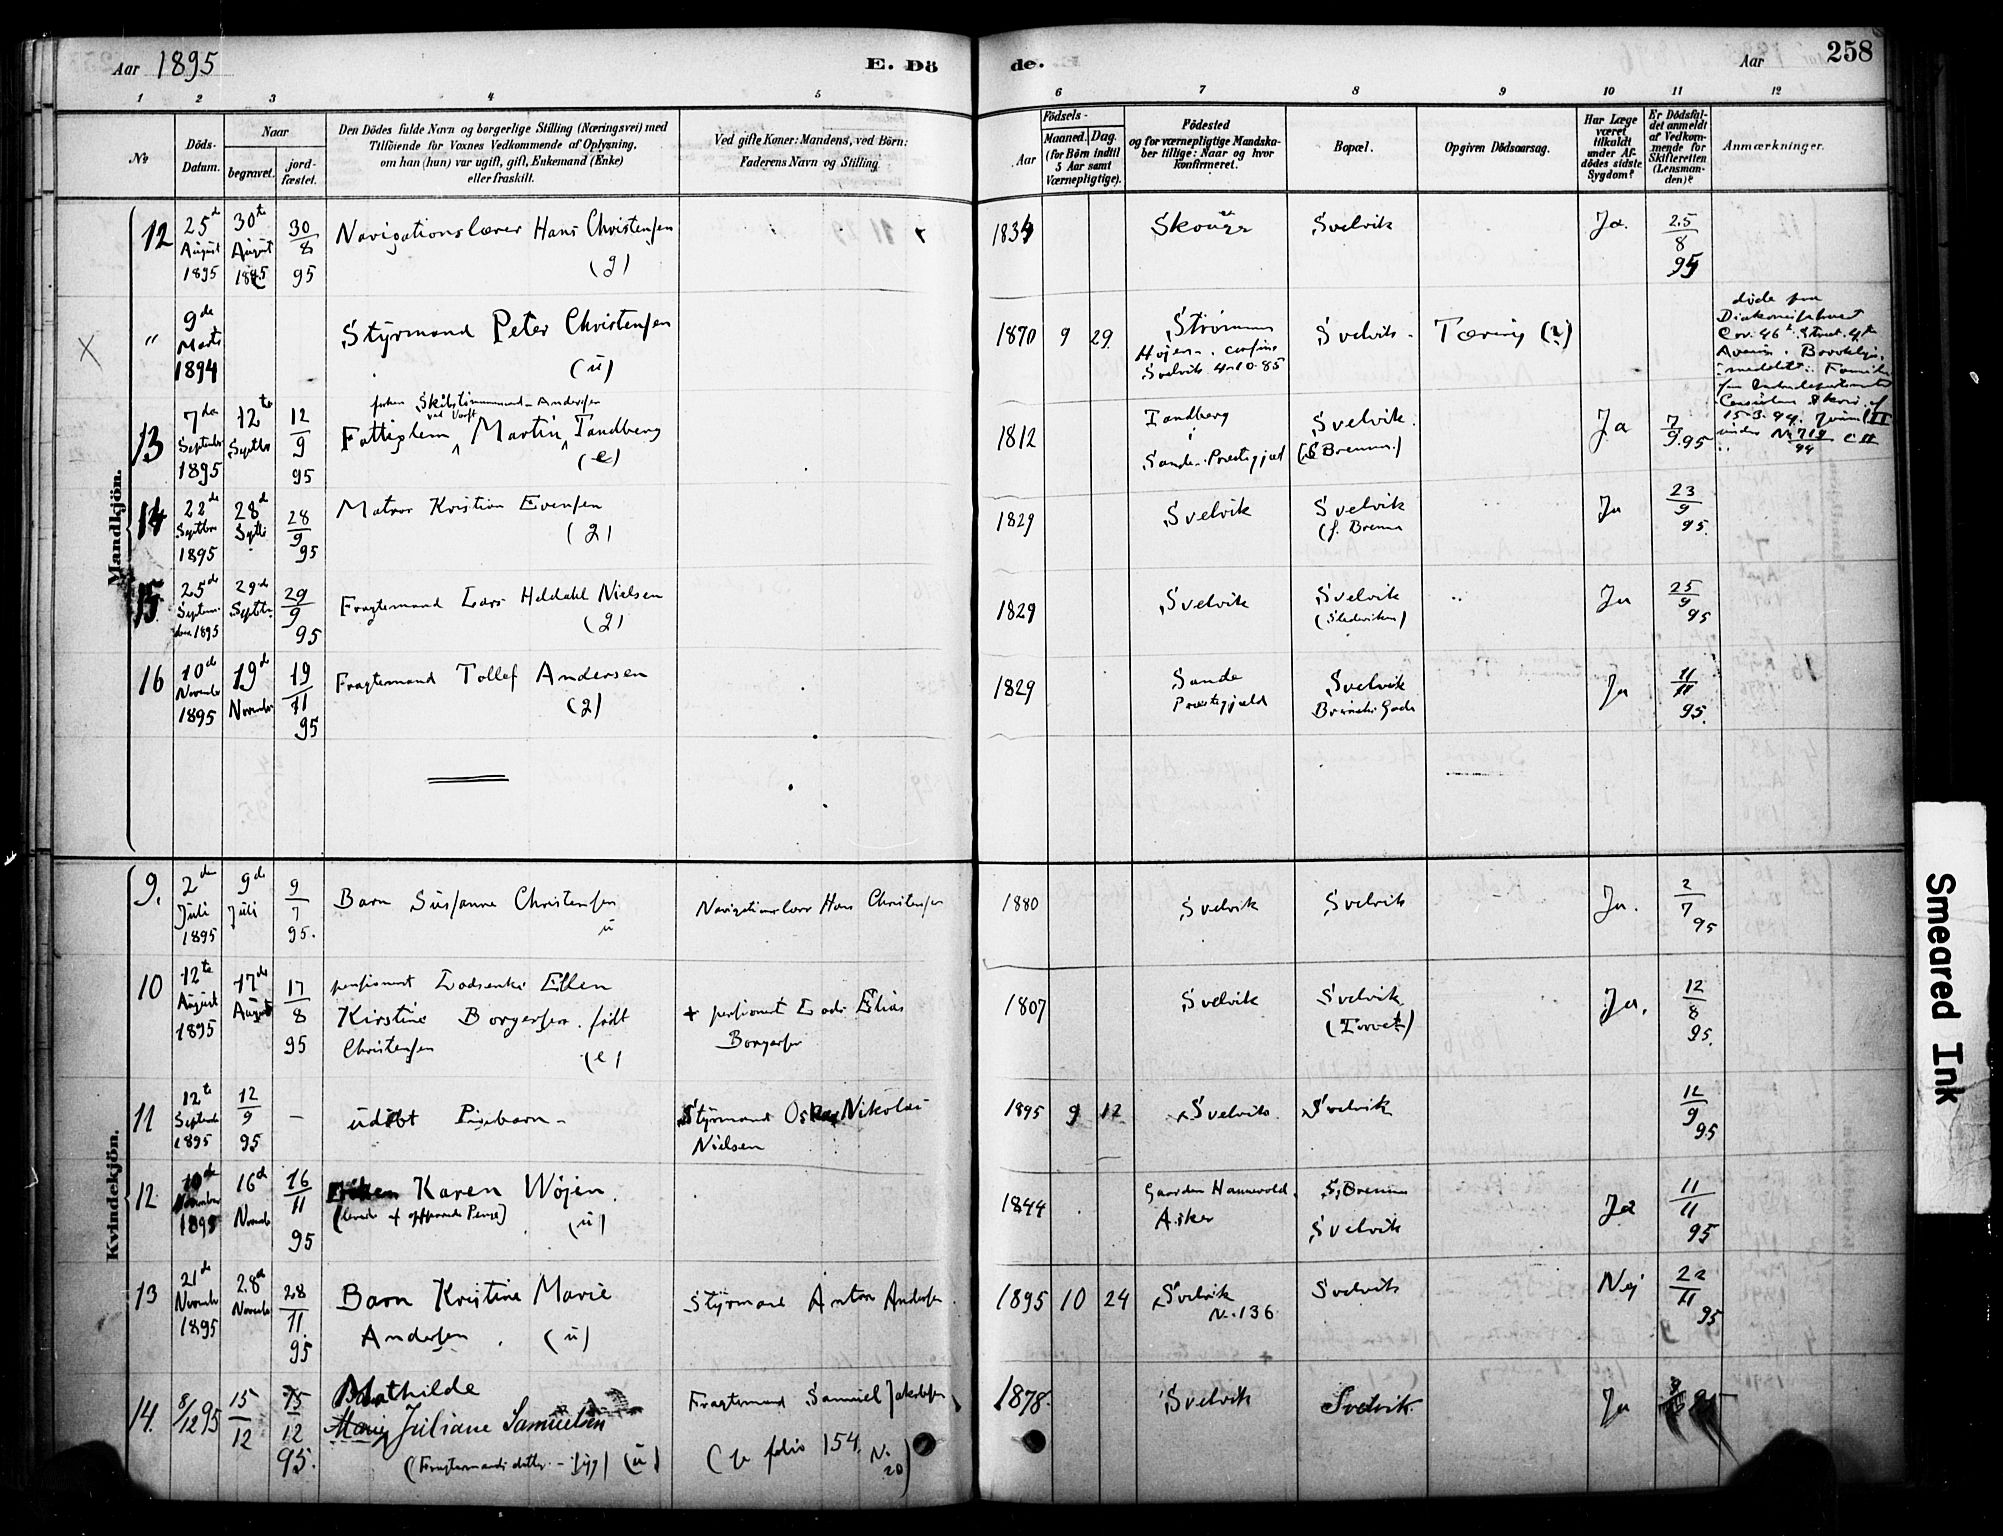 Aar 1895
E. Dö
de.
Aar
258
1 2 3 4 5 6 7 8 9 10 11 12
No
Döds-
Datum.
Naar
begravet.
jord-
fæstet.
Den Dödes fulde Navn og borgerlige Stilling (Næringsvei) med
Tilföiende for Voxnes Vedkommende af Oplysning,
om han (hun) var ugift, gift, Enkemand (Enke)
eller fraskilt.
Ved gifte Koner: Mandens, ved Börn:
Faderens Navn og Stilling
Födsels-
Aar
Maaned. Dag.
(for Börn indtil
5 Aar samt
Værnepligtige).
Födested
og for værnepligtige Mandska-
ber tillige: Naar og hvor
konfirmeret.
Bopæl.
Opgiven Dödsaarsag.
Har Læge
været
tilkaldt
under Af-
dödes sidste
Sygdom?
Er Dödsfal-
det anmeldt
af Vedkom-
mende for
Skifteretten
(Lensman-
den)?
Anmærkninger.
Mandkjön.
12 25d August 1895 30te August 1895 30/8 95 Navigationslærer Hans Christensen (g) Svelvik Ja. 25/8 95
" 9de Marts 1894 Styrmand Peter Christensen (u) 1870 9 29 Strømm Svelvik 4-10-85 Svelvik Tæring (?)
døde paa
Cor. 46t Street 4th
Brooklyn
15-3-94
13 7de September 1895 12te Septbr 12/9 95 Martin Tandberg (e) 1812 Tandberg i Sande Præstegjæld Svelvik Ja 7/9 95
14 22de Septbr 1895 28d Septb 28/9 95 Matros Kristian Evensen (g) 1829 Svelvik Svelvik Ja 23/9 95
15 25de September 1895 29de Septbr. 29/9 95 Fragtemand Lars Heldahl Nielsen (g) 1829 Svelvik Svelvik Ja 25/9 95
16 10de November 1895 19d November 19/11 95 Fragtemand Tollef Andersen (g) 1829 Sande Præstegjæld Svelvik Ja 11/11 95.
Kvindekjön.
9. 2den Juli 1895 9de Juli 9/7 95. Barn Susanne Christensen u Navigationslærer Hans Christensen 1880 Svelvik Svelvik Ja. 2/7 95
10 12te August 1895 17de August 17/8 95 pensioneret Lodsenke Ellen
Kirstine Borgersen født
Christensen (e) + pensioneret Lods Elias
Borgersen 1807 Svelvik Svelvik Ja. 12/8 95.
11 12te September 1895 12/9 95 – udøbt Pigebarn – Styrmand Oskar Nikolai
Nielsen 1895 9 12 Svelvik Svelvik 12/9 95
12 10de November 1895 16d Novemb 16/11 95 Karen Wøien. (u) 1844 Gaarden Hannevold, Asker Svelvik Ja 11/11 95
13 21de Novemb 1895 28d Novemb 28/11 95 Barn Kristine Marie
Andersen (u) Styrmand Anton Andersen 1895 10 24 Svelvik No. 136 Svelvik Nej 22/11 95
14. 8/12 95 15/12 15/12 95. Mathilde
Juliane Samuelsen
(u) Fragtemand Samuel Jakobsen
folio 154. No 20 1878. Svelvik Svelvik Ja
Smeared Ink